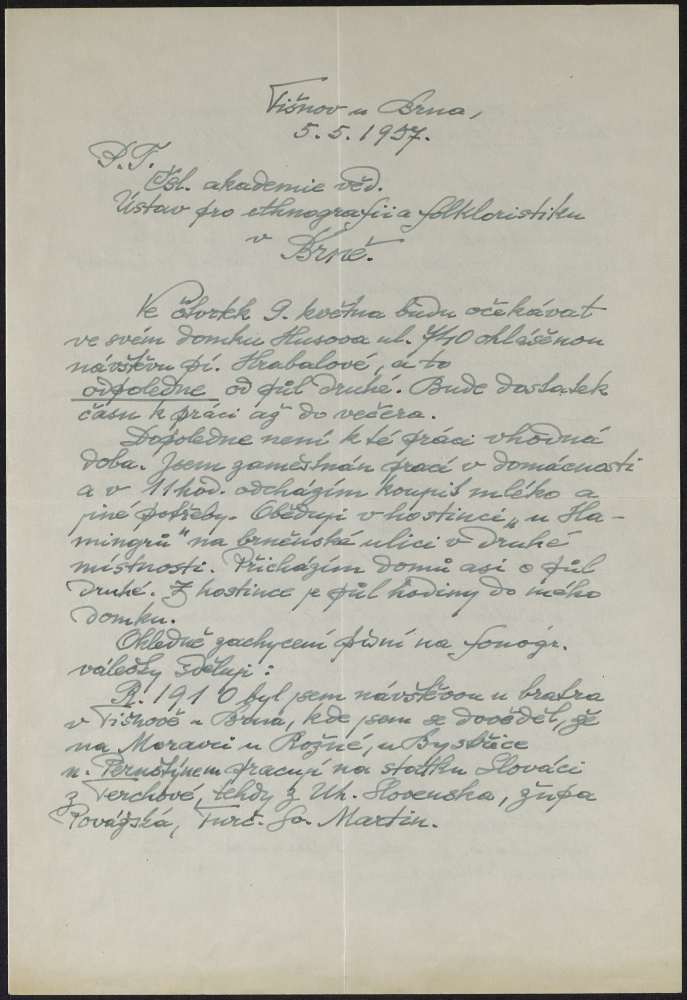 Tišnov u Brna,
5. 5. 1957.
P. T.
Čsl. akademie věd.
Ústav pro ethnografii a folkloristiku
v Brně.
Ve čtvrtek 9. května budu očekávat
ve svém domku Husova ul. ohlášenou
návštěvu pí. Hrabalové, a to
odpoledne od půl druhé. Bude dostatek
času k práci až do večera.
Dopoledne není k té práci vhodná
doba. Jsem zaměstnán prací v domácnosti
a v 11 hod. odcházím koupit mléko a
jiné potřeby. Obědvaji v hostinci „u Ha-
mingrů" na brněnské ulici v druhé
místnosti. Přicházím domů asi o půl
druhé. Z hostince je půl hodiny do mého
domku.
Ohledně zachycení písní na fonogr.
válečky sděluji:
R. 1910 byl jsem návštěvou u bratra
v Tišnově u Brna, kde jsem se dověděl, že
na Moravci u Rožné, u Bystřice
n. Pernštýnem pracují na statku Slováci
z Terchové, tehdy z Uh. Slovenska, župa
Považská, Turč. Sv. Martin.